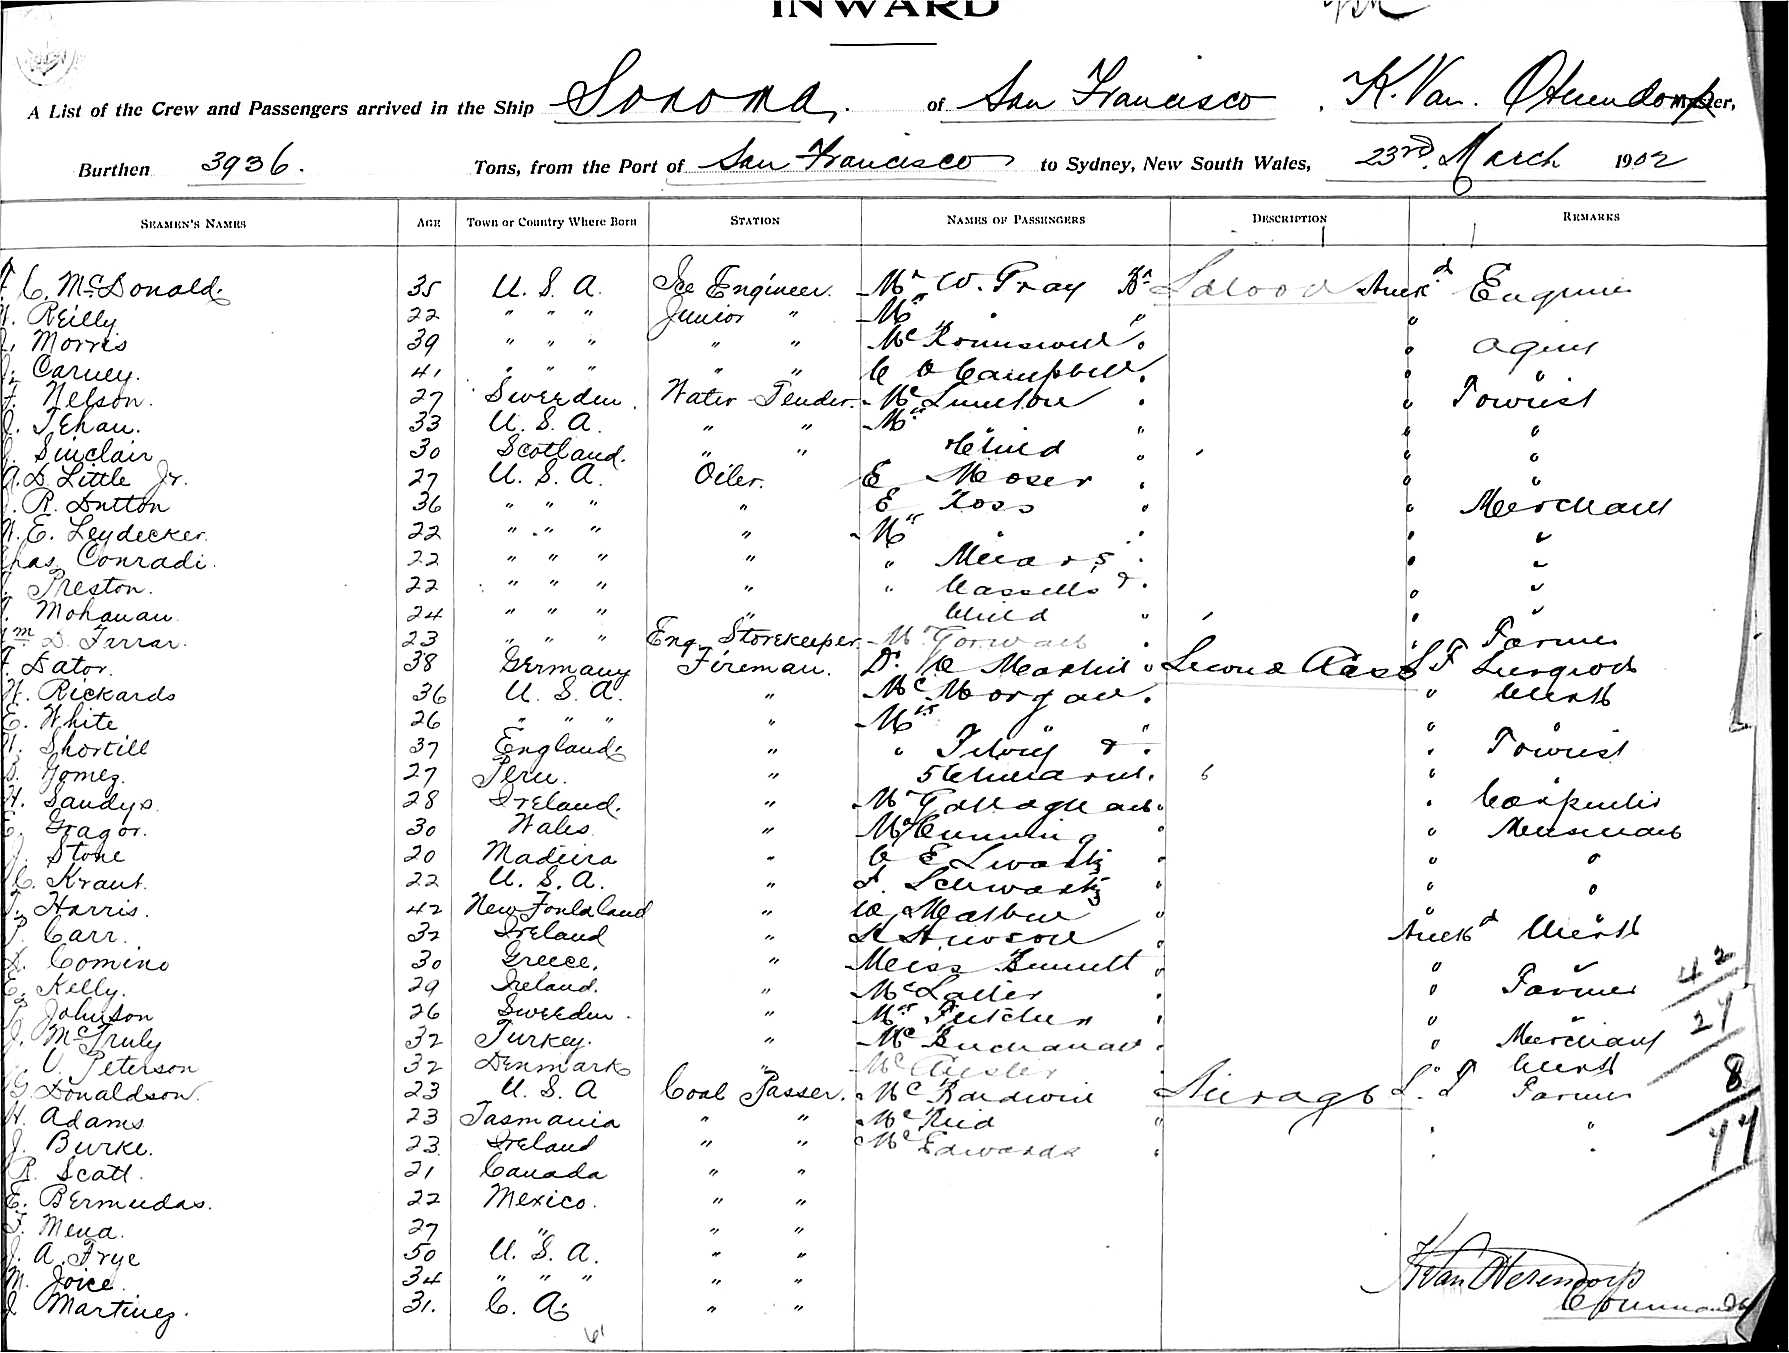 INWARD
A List of the Crew and Passengers arrived in the Ship Sonoma. of San Francisco, K. Van. Oterendorp Master,
Burthen 3936. Tons, from the Port of San Francisco to Sydney, New South Wales, 23rd March 1902
SEAMEN'S NAMES AGE Town or Country Where Born STATION NAMES OF PASSENGERS DESCRIPTION REMARKS
C. McDonald. 35 U. S. A. Ice Engineer. Mr W. Gray Saloon Auckd
Reilly 22 " " " Junior " Mrs " "
Morris 39 " " " " " Mr " Agent
Carney. 41 " " " " " C O Campbell " "
Nelson. 27 Sweeden. Water Tender. Mr " Tourist
Tehau. 33 U. S. A. " " Mrs " " "
Sinclair 30 Scotland. " " Child " " "
A. D. Little Jr. 27 U. S. A. Oiler. E Moser " " "
R. Dutton 36 " " " " E Ross " " Merchant
W. E. Leydecker. 22 " " " " Mrs " " " "
Chas. Conradi. 22 " " " " " Mears " " "
Preston. 22 " " " " " Cassells & " " "
Mohanan 24 " " " " Child " " "
Wm D. Firrar. 23 " " " Eng. Storekeeper. Mr " " Farmer
F. Dator. 38 Germany Fireman. Dr. Martin " Second Class S F Surgeon
W. Rickards 36 U. S. A. " Mr Morgan " " Clerk
E. White 26 " " " " Mrs " " " "
Shortill 37 England " " & " " Tourist
Gomez. 27 Peru. " 5 Children " " "
H. Sandys. 28 Ireland. " Mr Gallagher " " Carpenter
Gragor. 30 Wales. " Mr Cumming " "
J. Stone 20 Madeira " C E Swartz " " "
C. Kraut. 22 U. S. A. " F. Schwartz " " "
T. Harris. 42 New Foundland " " " "
P. Carr. 32 Ireland " " Auckd Clerk
D. Comino 30 Greece. " Miss Bennett " " "
E. Kelly. 29 Ireland. " Mr " " Farmer
P. Johnson 26 Sweeden. " Mrs Fletcher " " "
J. McTruly 32 Turkey. " Mr Buchanan " " Merchant
O. Peterson 32 Denmark " Mr " Clerk
G. Donaldson. 23 U. S. A Coal Passer. Mr Baldwin Steerage S. F Farmer
H. Adams 23 Tasmania " " Mr Reid " " "
J. Burke. 23 Ireland " " Mr Edwards " " "
R. Scatt. 21 Canada " "
E. Bermudas. 22 Mexico. " "
F. Mena. 27 " " "
J. A. Frye 50 U. S. A. " "
M. Joice. 34 " " " " "
J. Martinez. 31. C. A. " "
42
27
8
77
K Van Oterendorp
Commander
61